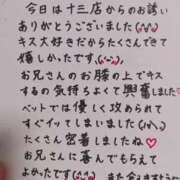 今日は十三店からのお誘い
ありがとうございました(^^)
キス大好きだからたくさんできて
嬉しかったです。
お兄さんのお膝の上でキス
するの気持ちよくて興奮しました♥
ベットでは優しく攻められて
すぐイッてしまいました(^^)
たくさん密着しましたね♡
お兄さんに喜んでもらえて
よかったです